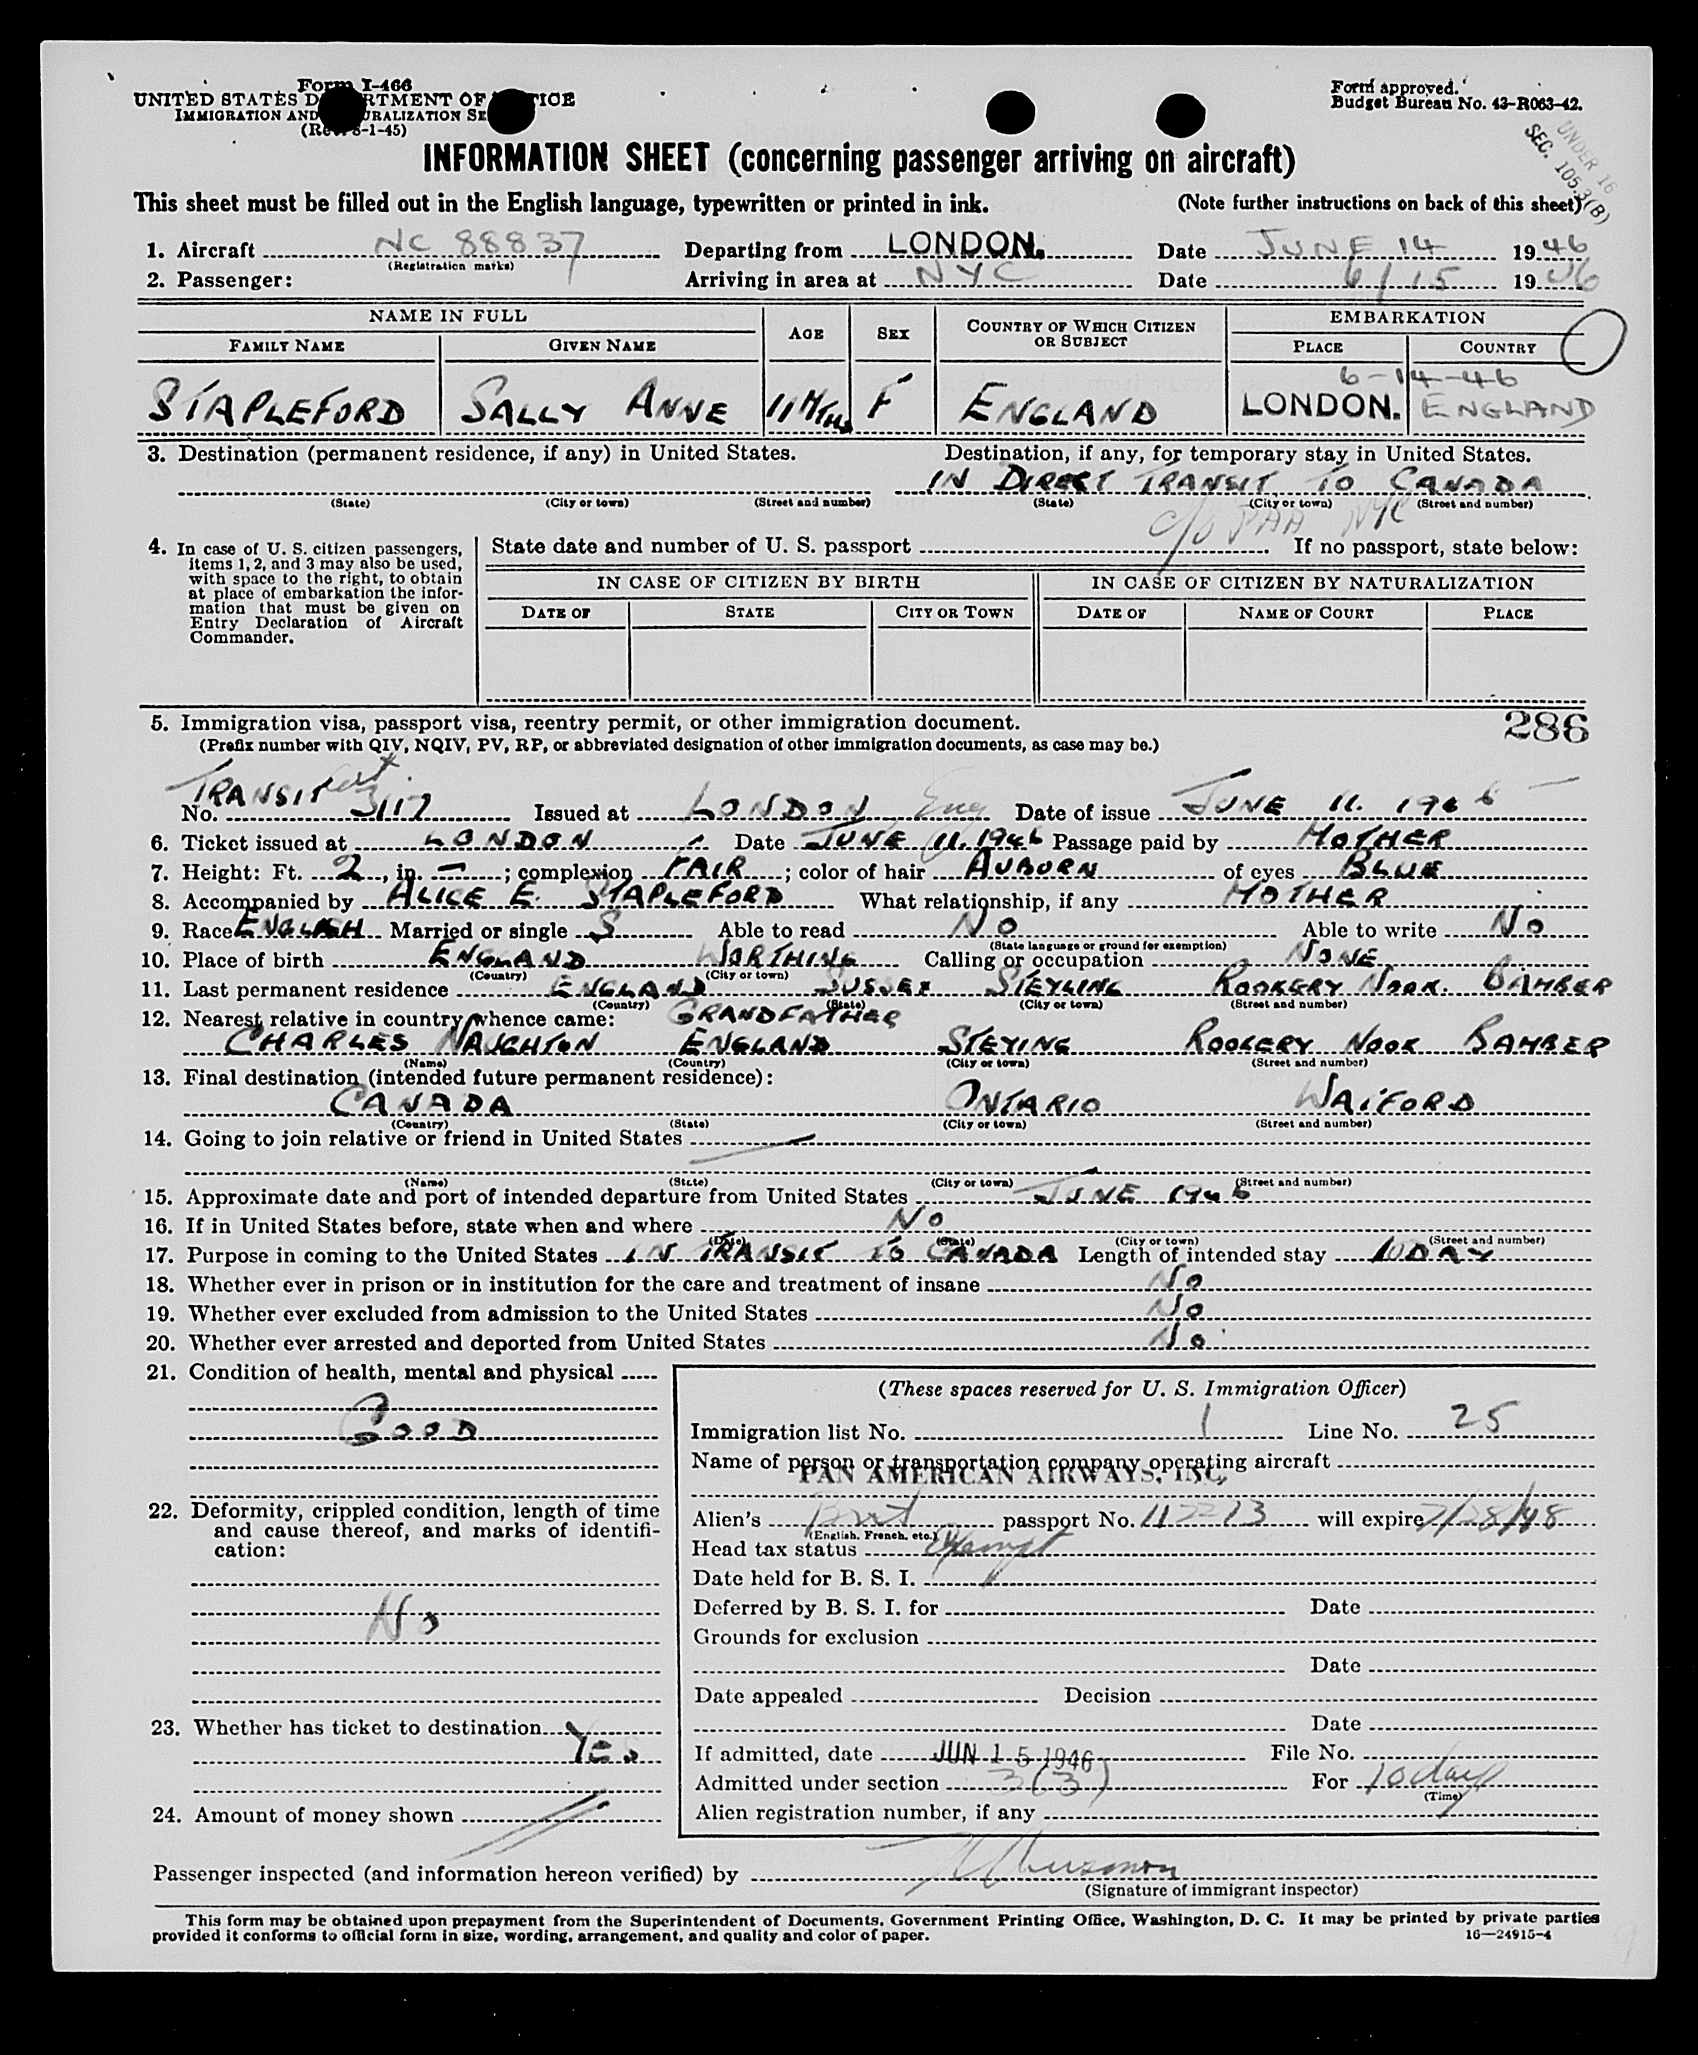 Form I-466
UNITED STATES DEPARTMENT OF JUSTICE
IMMIGRATION AND NATURALIZATION SE
(Rev. 8-1-45)
Form approved.
Budget Bureau No. 43-R063-42.
UNDER 16
SEC. 105.3(B)
INFORMATION SHEET (concerning passenger arriving on aircraft)
This sheet must be filled out in the English language, typewritten or printed in ink. (Note further instructions on back of this sheet)
1. Aircraft NC 88837 Departing from LONDON. Date JUNE 14 1946
(Registration marks)
2. Passenger: Arriving in area at NYC Date 6/15 1946
NAME IN FULL AGE SEX COUNTRY OF WHICH CITIZEN OR SUBJECT EMBARKATION
FAMILY NAME GIVEN NAME PLACE COUNTRY
6-14-46
STAPLEFORD SALLY ANNE 11 MTHS F ENGLAND LONDON. ENGLAND
3. Destination (permanent residence, if any) in United States. Destination, if any, for temporary stay in United States.
IN DIRECT TRANSIT TO CANADA
(State) (City or town) (Street and number) (State) (City or town) (Street and number)
c/o PAA NYC
4. In case of U. S. citizen passengers, items 1, 2, and 3 may also be used, with space to the right, to obtain at place of embarkation the information that must be given on Entry Declaration of Aircraft Commander.
State date and number of U. S. passport If no passport, state below:
IN CASE OF CITIZEN BY BIRTH IN CASE OF CITIZEN BY NATURALIZATION
DATE OF STATE CITY OR TOWN DATE OF NAME OF COURT PLACE
5. Immigration visa, passport visa, reentry permit, or other immigration document. 286
(Prefix number with QIV, NQIV, PV, RP, or abbreviated designation of other immigration documents, as case may be.)
TRANSIT Cert.
No. 3117 Issued at LONDON Eng Date of issue JUNE 11. 1946
6. Ticket issued at LONDON Date JUNE 11. 1946 Passage paid by MOTHER
7. Height: Ft. 2, in. —; complexion FAIR; color of hair AUBURN of eyes BLUE
8. Accompanied by ALICE E. STAPLEFORD What relationship, if any MOTHER
9. Race ENGLISH Married or single S Able to read NO Able to write NO
(State language or ground for exemption)
10. Place of birth ENGLAND WORTHING Calling or occupation NONE
(Country) (City or town)
11. Last permanent residence ENGLAND SUSSEX STEYLING ROOKERY NOOK. BAMBER
(Country) (State) (City or town) (Street and number)
12. Nearest relative in country whence came: GRANDFATHER
CHARLES NAUGHTON ENGLAND STEYING ROOKERY NOOK BAMBER
(Name) (Country) (City or town) (Street and number)
13. Final destination (intended future permanent residence):
CANADA ONTARIO WAIFORD
(Country) (State) (City or town) (Street and number)
14. Going to join relative or friend in United States —
(Name) (State) (City or town) (Street and number)
15. Approximate date and port of intended departure from United States JUNE 1946
16. If in United States before, state when and where NO
(Date) (State) (City or town) (Street and number)
17. Purpose in coming to the United States IN TRANSIT TO CANADA Length of intended stay 10 DAY
18. Whether ever in prison or in institution for the care and treatment of insane NO
19. Whether ever excluded from admission to the United States NO
20. Whether ever arrested and deported from United States NO
21. Condition of health, mental and physical
GOOD
22. Deformity, crippled condition, length of time and cause thereof, and marks of identification:
NO
23. Whether has ticket to destination
YES
24. Amount of money shown
(These spaces reserved for U. S. Immigration Officer)
Immigration list No. 1 Line No. 25
Name of person or transportation company operating aircraft
PAN AMERICAN AIRWAYS, INC.
Alien's Brit passport No. 112213 will expire 7/28/48
(English, French, etc.)
Head tax status Exempt
Date held for B. S. I.
Deferred by B. S. I. for Date
Grounds for exclusion
Date
Date appealed Decision
Date
If admitted, date JUN 15 1946 File No.
Admitted under section 3(3) For 10 days
(Time)
Alien registration number, if any
Passenger inspected (and information hereon verified) by
(Signature of immigrant inspector)
This form may be obtained upon prepayment from the Superintendent of Documents, Government Printing Office, Washington, D. C. It may be printed by private parties
provided it conforms to official form in size, wording, arrangement, and quality and color of paper. 16—24915-4